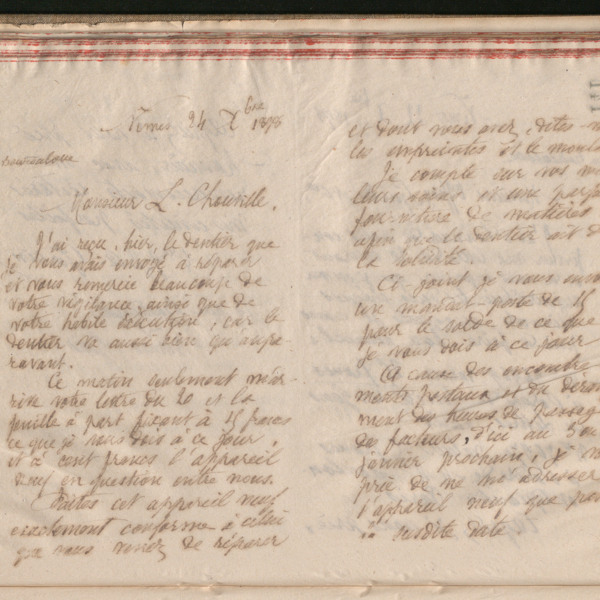 Nîmes 24 Xbre 1878
Monsieur L. Chouville.
J'ai reçu, hier, le dentier que
je vous avais envoyé à réparer
et vous remercie beaucoup de
votre vigilance ainsi que de
votre habile exécution, car le
dentier va aussi bien que aupa-
ravant.
Ce matin seulement m'ar-
rive votre lettre du 20 et la
feuille à part fixant à 15 francs
ce que je vous dois à ce jour,
et à cent francs l'appareil
neuf en question entre nous.
Faites cet appareil neuf
exactement conforme à celui
que vous venez de réparer
et dont vous avez, dites-
les empreintes et le moul
Je compte sur vos
leurs soins et une parf
fourniture de matières
afin que le dentier ait
la solidité
Ci-joint je vous env
un mandat-poste de 15
pour le solde de ce que
je vous dois à ce jour
A cause des encombre
ments postaux et du déran
ment des heures de passag
de facteurs, d'ici au
janvier prochain, je
prie de ne m'adresser
l'appareil neuf que
susdite date